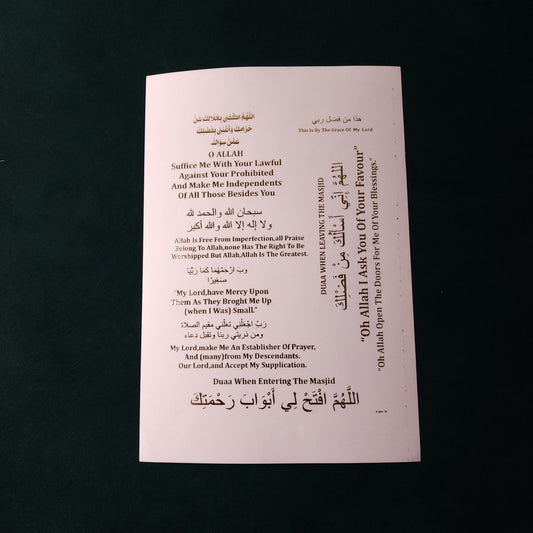 اللَّهُمَّ اكْفِنِي بِحَلَالِكَ عَنْ
حَرَامِكَ وَأَغْنِنِي بِفَضْلِكَ
عَمَّنْ سِوَاكَ
O ALLAH
Suffice Me With Your Lawful
Against Your Prohibited
And Make Me Independents
Of All Those Besides You
سبحان الله والحمد لله
ولا إله إلا الله والله أكبر
Allah Is Free From Imperfection,all Praise
Belong To Allah,none Has The Right To Be
Worshipped But Allah,Allah Is The Greatest.
ربَ ارْحَمْهُما كَما رَبَّيا
صَغِيْرًا
"My Lord,have Mercy Upon
Them As They Broght Me Up
(when I Was) Small."
رَبِّ اجْعَلْنِي مقيم الصلاة
ومن ذريتي ربنا وتقبل دعاء
My Lord,make Me An Establisher Of Prayer,
And (many)from My Descendants.
Our Lord,and Accept My Supplication.
Duaa When Entering The Masjid
اللَّهُمَّ افْتَحْ لِي أَبْوَابَ رَحْمَتِكَ
هذا من فضل ربي
This Is By The Grace Of My Lord
DUAA WHEN LEAVING THE MASJID
اللهُمَّ إِنِّي أَسْأَلُكَ مِنْ فَضْلِكَ
"Oh Allah I Ask You Of Your Favour"
"Oh Allah Open The Doors For Me Of Your Blessings."